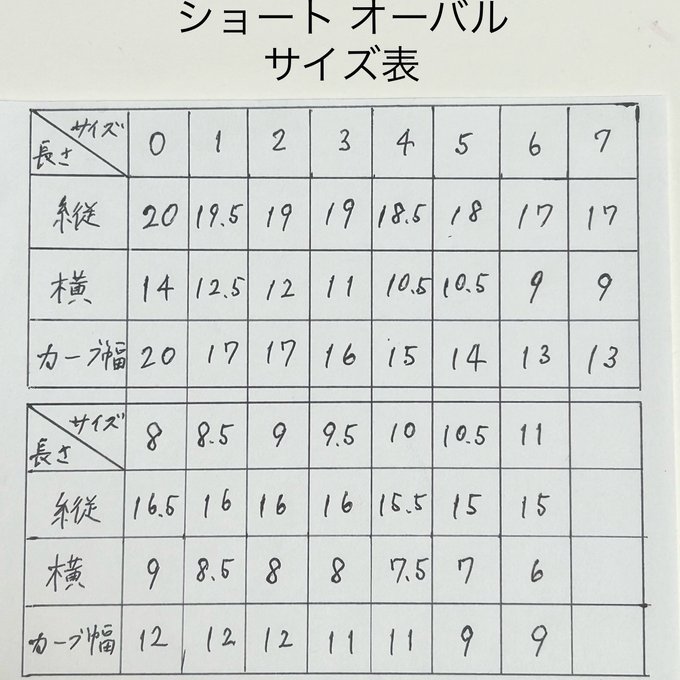 ショート オーバル
サイズ表
サイズ 長さ 0 1 2 3 4 5 6 7
縦 20 19.5 19 19 18.5 18 17 17
横 14 12.5 12 11 10.5 10.5 9 9
カーブ幅 20 17 17 16 15 14 13 13
サイズ 長さ 8 8.5 9 9.5 10 10.5 11
縦 16.5 16 16 16 15.5 15 15
横 9 8.5 8 8 7.5 7 6
カーブ幅 12 12 12 11 11 9 9